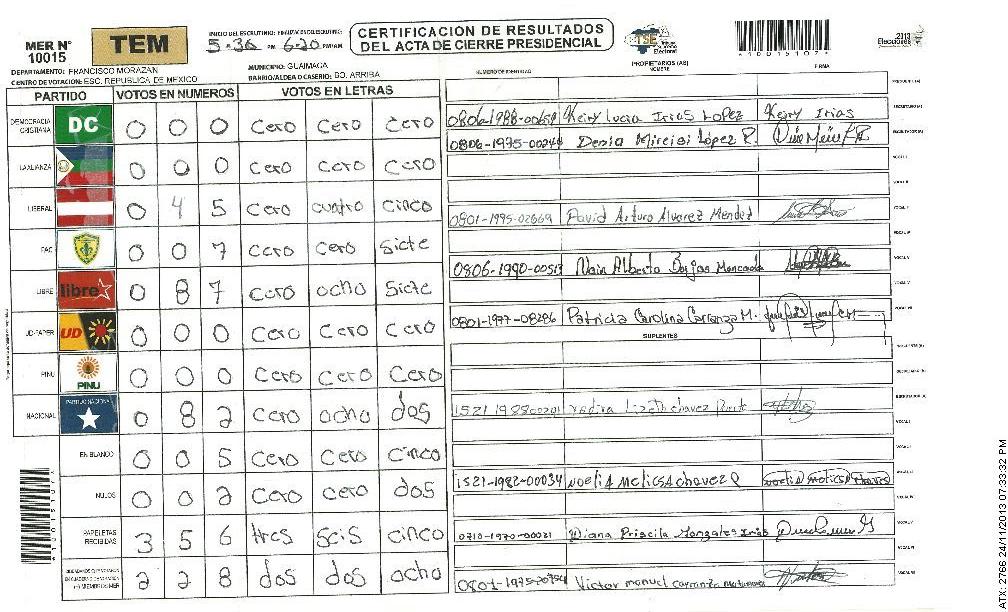 MER N°
10015
TEM
INICIO DEL ESCRUTINIO:
5-36 PM 6-20 PM/AM
CERTIFICACION DE RESULTADOS
DEL ACTA DE CIERRE PRESIDENCIAL
TSE
Tribunal Supremo Electoral
*10015107*
2013
Elecciones
DEPARTAMENTO: FRANCISCO MORAZAN
MUNICIPIO: GUAIMACA
CENTRO DE VOTACION: ESC. REPUBLICA DE MEXICO
BARRIO/ALDEA O CASERIO: BO. ARRIBA
NUMERO DE IDENTIDAD
PROPIETARIOS (AS)
NOMBRE
FIRMA
PARTIDO VOTOS EN NUMEROS VOTOS EN LETRAS
DEMOCRACIA CRISTIANA DC 0 0 0 cero cero cero
LA ALIANZA 0 0 0 cero cero cero
LIBERAL 0 4 5 cero cuatro cinco
PAC 0 0 7 cero cero siete
LIBRE libre 0 8 7 cero ocho siete
UD-FAPER UD 0 0 0 cero cero cero
PINU PINU 0 0 0 cero cero cero
NACIONAL PARTIDO NACIONAL 0 8 2 cero ocho dos
EN BLANCO 0 0 5 cero cero cinco
NULOS 0 0 2 cero cero dos
PAPELETAS RECIBIDAS 3 5 6 tres seis cinco
2 2 8 dos dos ocho
0806-1988-00659 Keiry Lucia Irias Lopez Keiry Irias
0806-1975-00244 Denia Mireisi López R.
0801-1995-02669 David Arturo Alvarez Mendez
0806-1990-00513 Nain Alberto Moncada
0801-1977-08286 Patricia Carolina Carranza M.
SUPLENTES
1521 198800201 Yadira Lizeth chavez
1521-1982-00034 Noelia Melissa chavez
0710-1970-00021 Diana Priscila Gonzales Irias
Victor manuel carranza
ATX: 2766 24/11/2013 07:33:32 PM